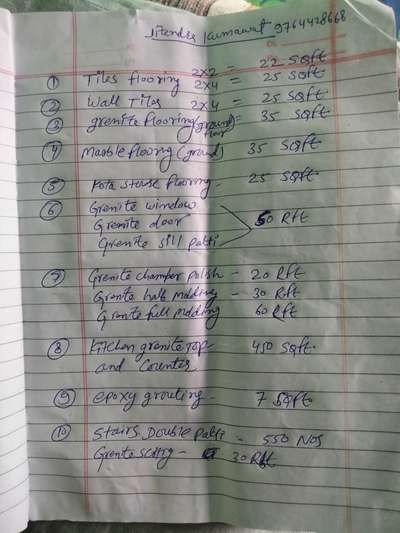 Jitendra Kumawat 9764428668
① Tiles flooring 2x2 = 22 Sqft
2x4 = 25 Sqft
② Wall Tiles 2x4 = 25 Sqft
③ grenite flooring (ground floor) = 35 Sqft
④ Marble flooring (ground) 35 Sqft
⑤ Kota stone flooring - 25 Sqft
⑥ Grenite window
Grenite door 50 Rft
Grenite sill patti
⑦ Grenite chamber polish - 20 Rft
Grenite half molding - 30 Rft
Grenite full molding 60 Rft
⑧ Kitchen grenite Top 450 Sqft
and Counter
⑨ epoxy grouting - 7 Sqft
⑩ Stairs Double patti - 550 Nos
Grenite - 30 Rft